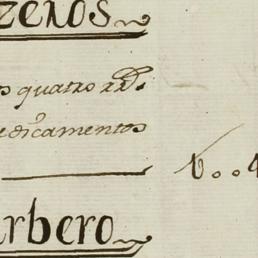 zeros
s quatro rr.s
edicamentos
V..4
rbero